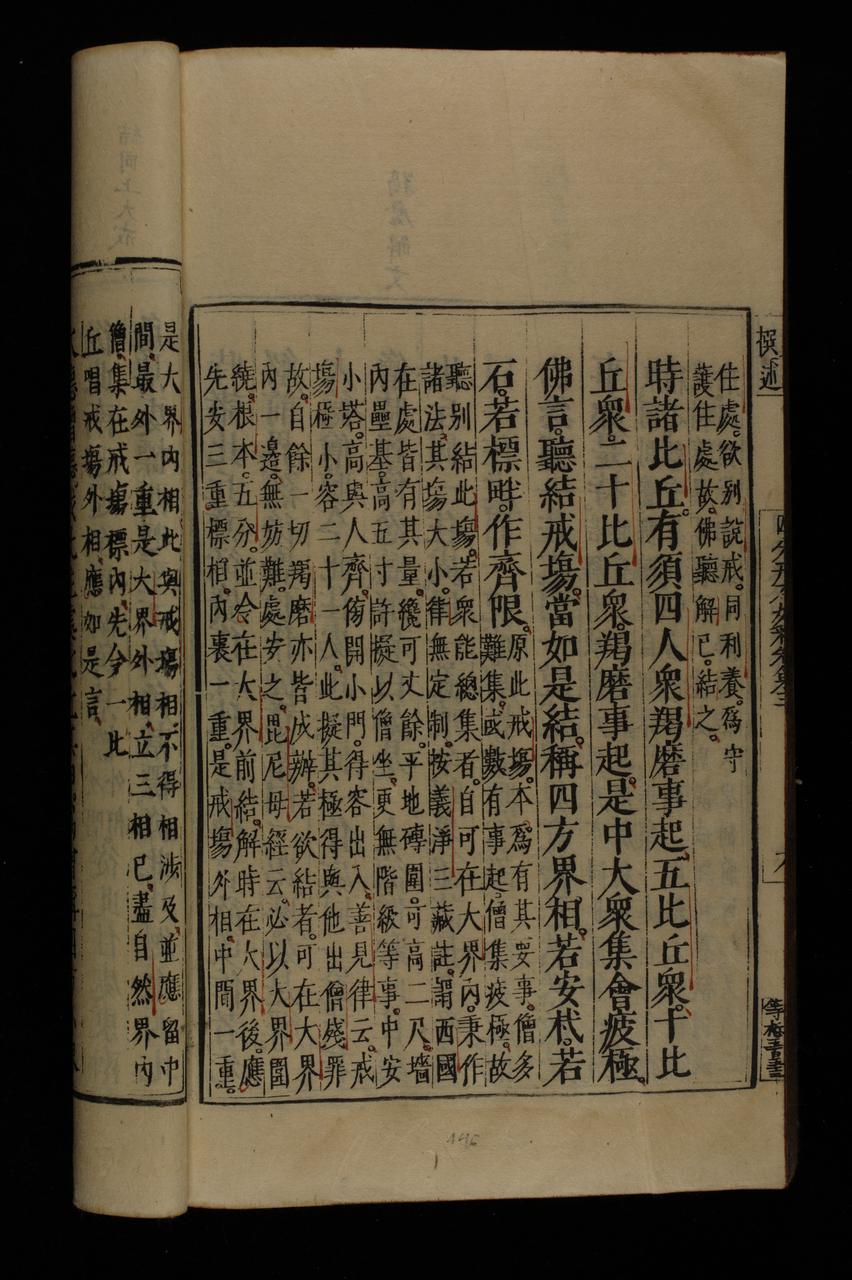 撰述
住處。欲別說戒。同利養。為守
護住處故。佛聽解已。結之。
時諸比丘。有須四人衆羯磨事起。五比丘衆。十比
丘衆。二十比丘衆。羯磨事起。是中大衆集會疲極。
佛言。聽結戒塲。當如是結。稱四方界相。若安杙。若
石。若標畔。作齊限。
原此戒塲。本為有其要事。僧多
難集。或數有事起。僧集疲極。故
聽別結此塲。若衆能總集者。自可在大界內。秉作
諸法。其塲大小。律無定制。按義淨三藏註。謂西國
在處皆有其量。纔可丈餘。平地磚圍。可高二尺。墻
內壘基。高五寸許。擬以僧坐。更無階級等事。中安
小塔。高與人齊。傍開小門。得容出入。善見律云。戒
塲極小。容二十一人。此擬其極得與他出僧殘罪
故。自餘一切羯磨亦皆成辦。若欲結者。可在大界
內一邊。無妨難處安之。毘尼母經云。必以大界圍
繞。根本五分。並令在大界前結。解時在大界後。應
先安三重標相。內裏一重。是戒塲外相。中間一重。
是大界內相。此與戒塲相。不得相涉及。並應留中
間。最外一重。是大界外相。立三相已。盡自然界內
僧。集在戒塲標內。先令一比
丘唱戒塲外相。應如是言。
146